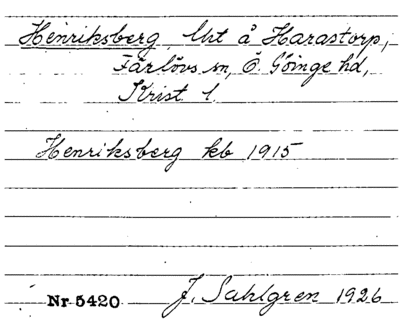 Henriksberg, lht å Harastorp,
Färlövs sn, Ö. Göinge hd,
Krist l.
Henriksberg kb 1915
Nr 5420 J. Sahlgren 1926